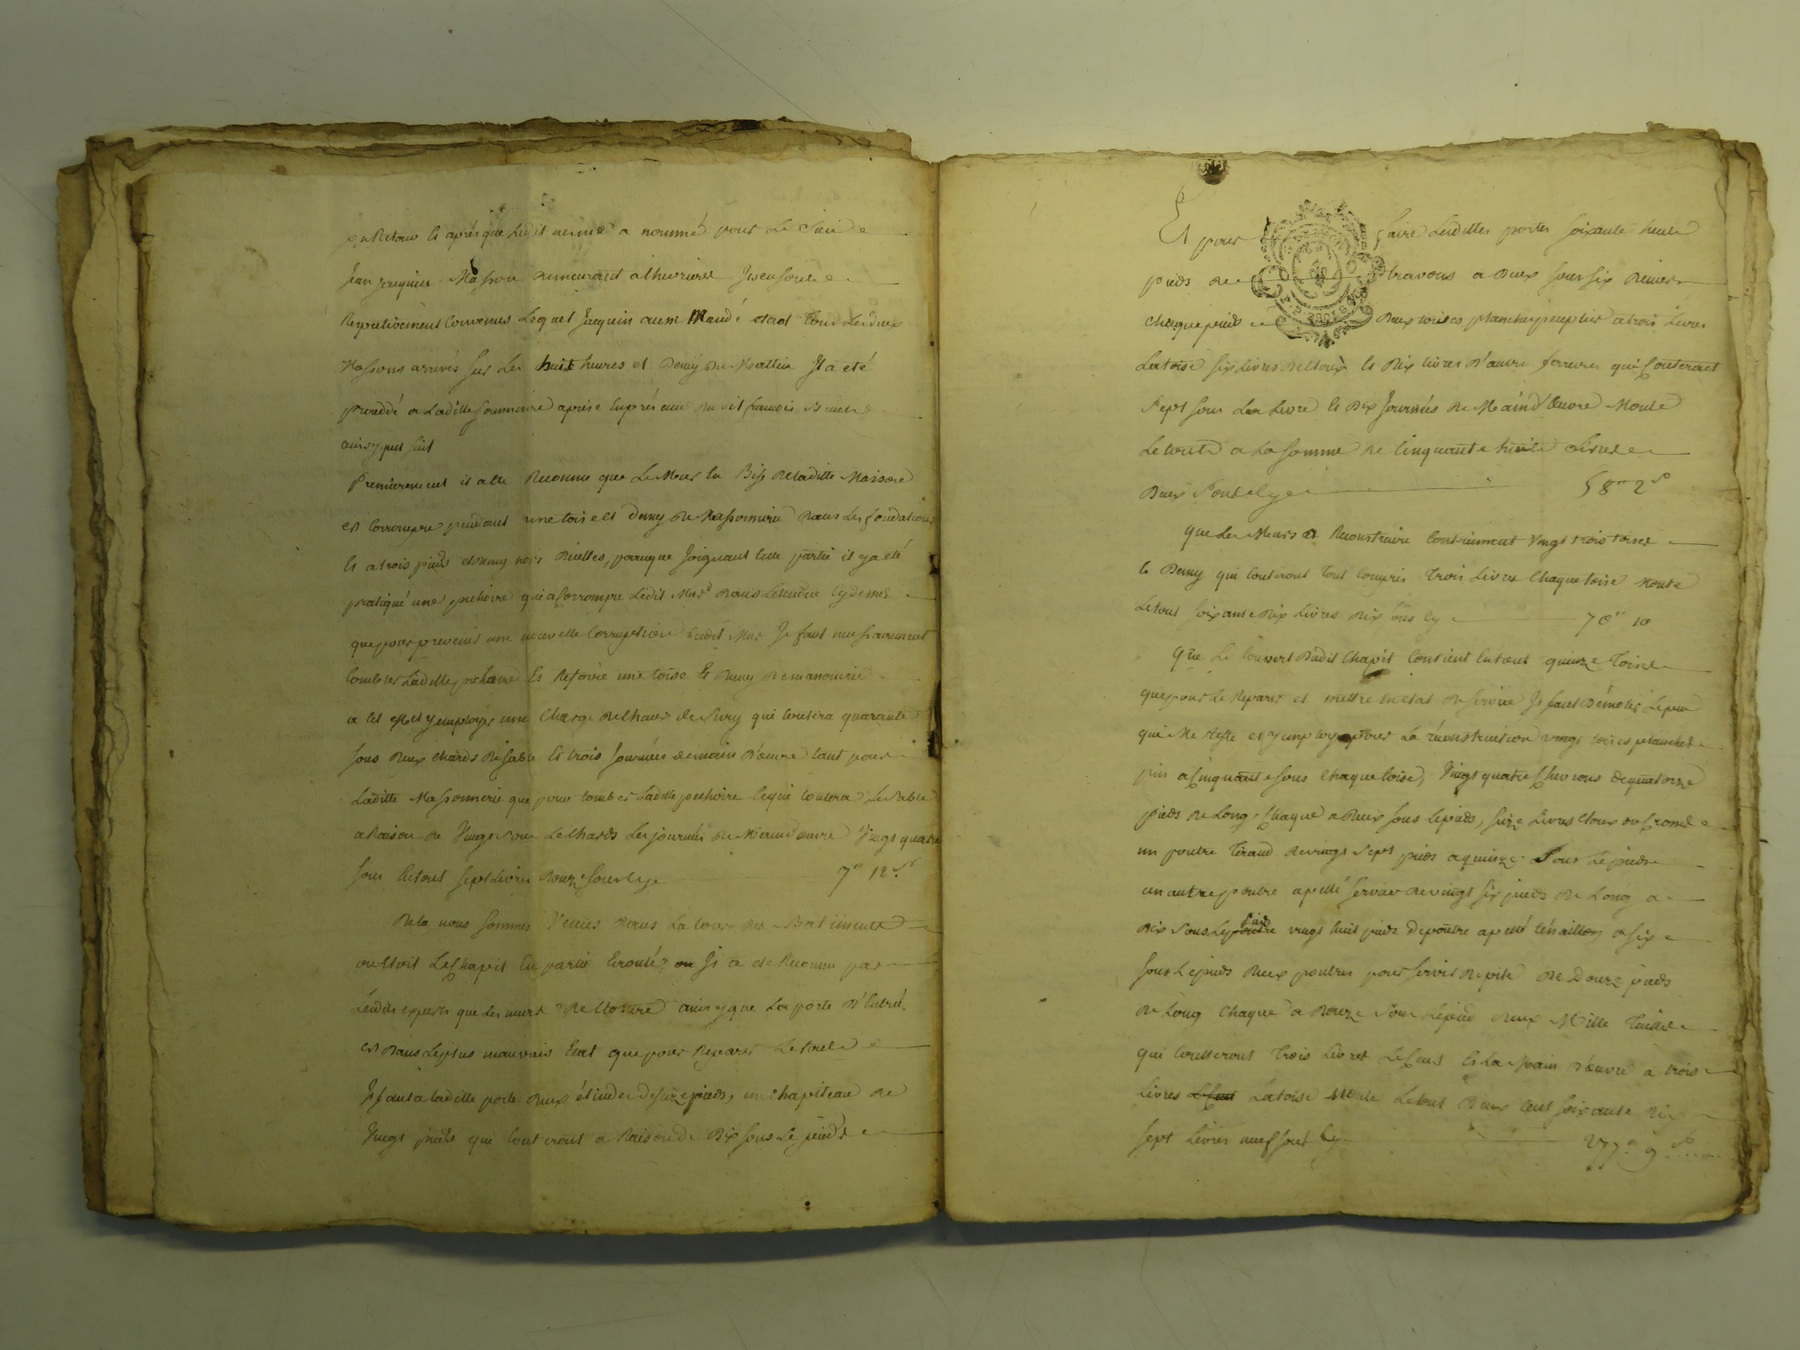 en Retour et après que Ledit aurait a nommé pour Le Sien
Jean Jacquin Masson demeurant
Respectivement Convenus Lequel Jacquin aussi Mandé etant tous Les deux
Massons arrivés sur Les huit heures et Demy du Mattin Il a eté
procédé a Ladille Sommaire aprise En présence du dit françois
ainsy que suit
Premierement il a eté Reconnu que Le Meur la Bise de ladille Maison
est Corrompu pendant une toise et Demy de Massonnerie Dans Les fondations
et a trois pieds et Demy hors Dicelles, parceque Joignant Cette partie il y a eté
pratiqué une pechoire qui a Corrompu Ledit Mur Dans L'etendue Cy dessus
que pour prevenir une nouvelle Corruption dudit Mur Il faut necessairement
Combler Ladille pechoire Et Refaire une toise Et Demy de massonnerie
a Cet effet y employer une Charge de Chaux de qui Coutera quarante
sous Deux Chards de Sable Et trois Journées de main D'euvre tant pour
Ladille Massonnerie que pour Combler Ladille pechoire Ce qui Coutera, Le Sable
a Raison de Vingt sous Le Chards Les journées de Main D'euvre Vingt quatre
sous Le tout sept Livres Douze sous Cy 7ᵗᵗ 12ˢ
Dela nous sommes Venus Dans La Cour des Batiments
ou Etoit Le Chapit En partie Ecroulé, ou Il a eté Reconnu par
Lesdits experts que Les murs De Cloture ainsy que La porte D'Entrée
est Dans Le plus mauvais Etat que pour Reparer Le tout
Il faut a ladille porte Deux de seize pieds, un Chapiteau de
Vingt pieds qui Couteront a Raison de Dix sous Le pied
Et pour faire Lesdilles portes soixante huit
pieds de travons a Deux sous six Deniers
Chaque pied Deux toises planches peuplier a trois Livres
La toise six Livres De Cloux et Dix Livres D'autre ferrures qui Couterait
Sept sous La Livre et Dix Journées de Maind'Euvre Monte
Le tout a La somme de Cinquante huit Livres
Deux sous Cy 58ᵗᵗ 2ˢ
Que Les Meurs a Reconstruire Contiennent Vingt trois toises
et Demy qui Couteront Tout Compris Trois Livres Chaque toise Monte
Le tout soixante Dix Livres Dix sous Cy 70ᵗᵗ 10
Que Le Couvert Dudit Chapit Contient En tout quinze Toises
que pour Le Reparer et mettre En etat de service Il faut Démolir Le peu
qui Me Reste et y employer pour La réconstruction vingt toises planches
pin a Cinquante sous Chaque toise, Vingt quatre Chevrons de quatorze
pieds de Long, Chaque a Deux sous Le pieds, seize Livres Cloux
un poutre Tirand de vingt sept pieds a quinze sous Le pied
un autre poutre apellé de vingt six pieds de Long a
Dix sous Le pied vingt huit pieds de poutre apellé a six
sous Le pieds Deux poutres pour servir de De Douze pieds
de Long Chaque a Douze sous Le pied Deux Mille Tuiles
qui Coutteront Trois Livres Le Cent Et La Main D'euvre a trois
Livres Le Cent La toise Monte Le tout Deux Cent soixante Dix
sept Livres neuf sous Cy 277ᵗᵗ 9ˢ